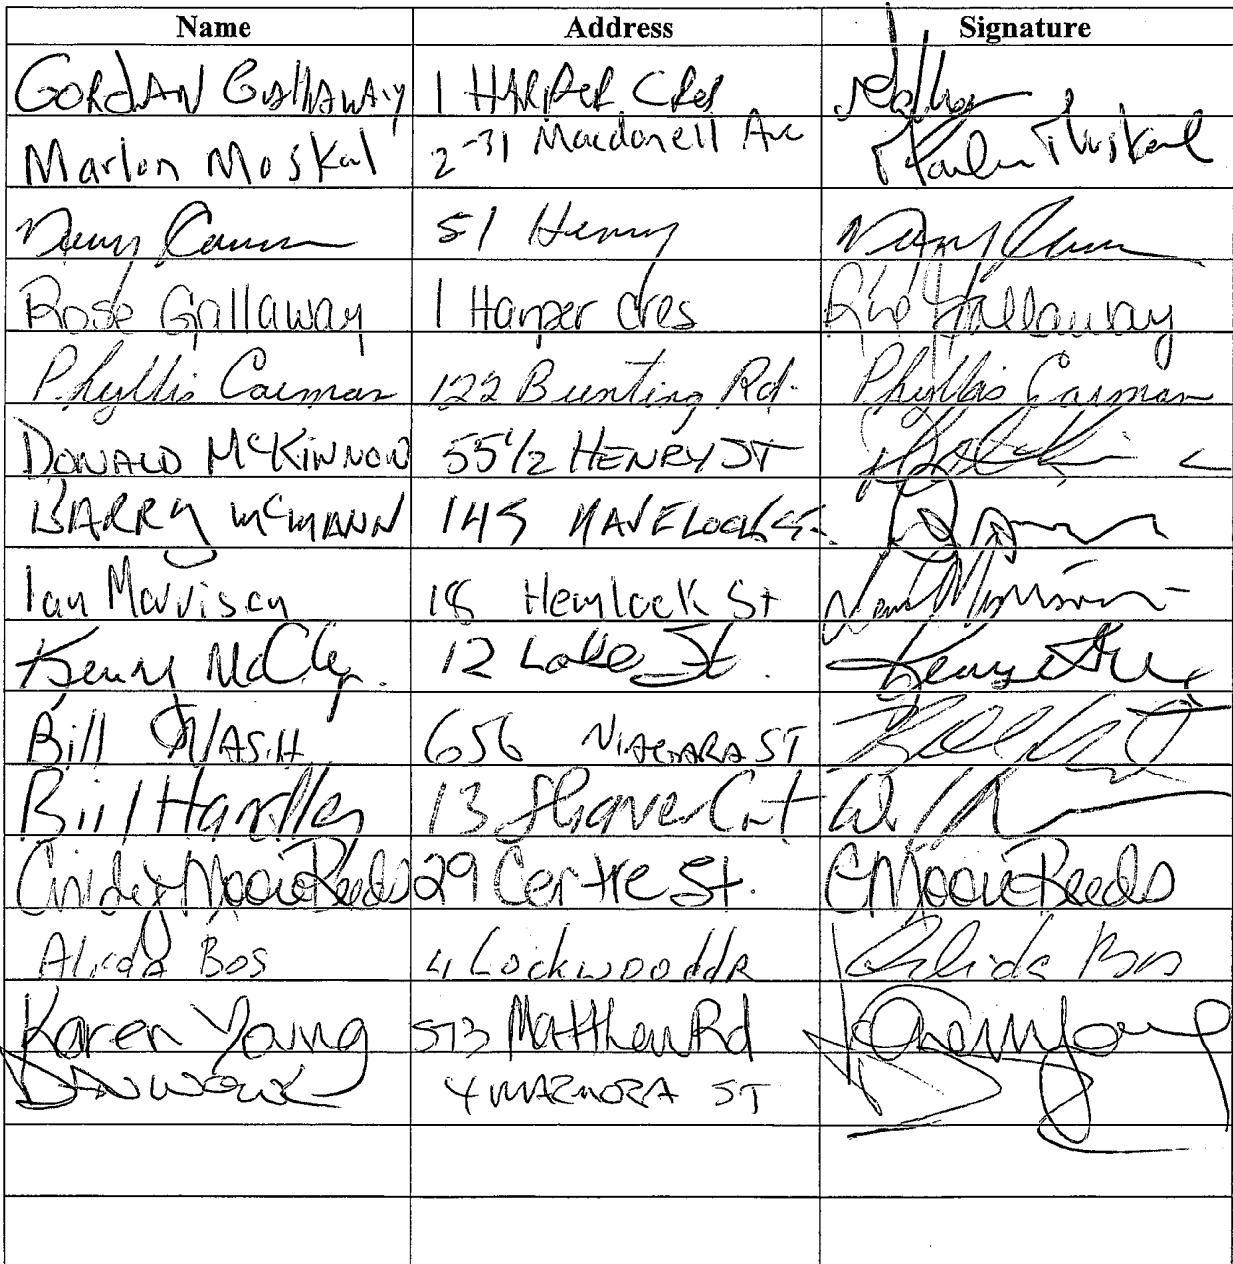 Name Address Signature
GORDAN GALLAWAY 1 HARPER CRES
Marlon Moskal 2-31 Macdonell Ave Marlon Moskal
51 Henry
Rose Gallaway 1 Harper cres Rose Gallaway
Phyllis Caiman 122 Bunting Rd. Phyllis Caiman
DONALD McKINNON 55 1/2 HENRY ST
BARRY McMANN 145 HAVELOCK
Ian Morrison 18 Hemlock St Ian Morrison
Kenny 12 Lake St.
Bill 656 NIAGARA ST
Bill 13
Cindy MooreReeds 29 Centre St. CMooreReeds
Alida Bos 4 Lockwood dR Alida Bos
Karen Young 573 Matthew Rd Karen Young
DAN 4 MARMORA ST